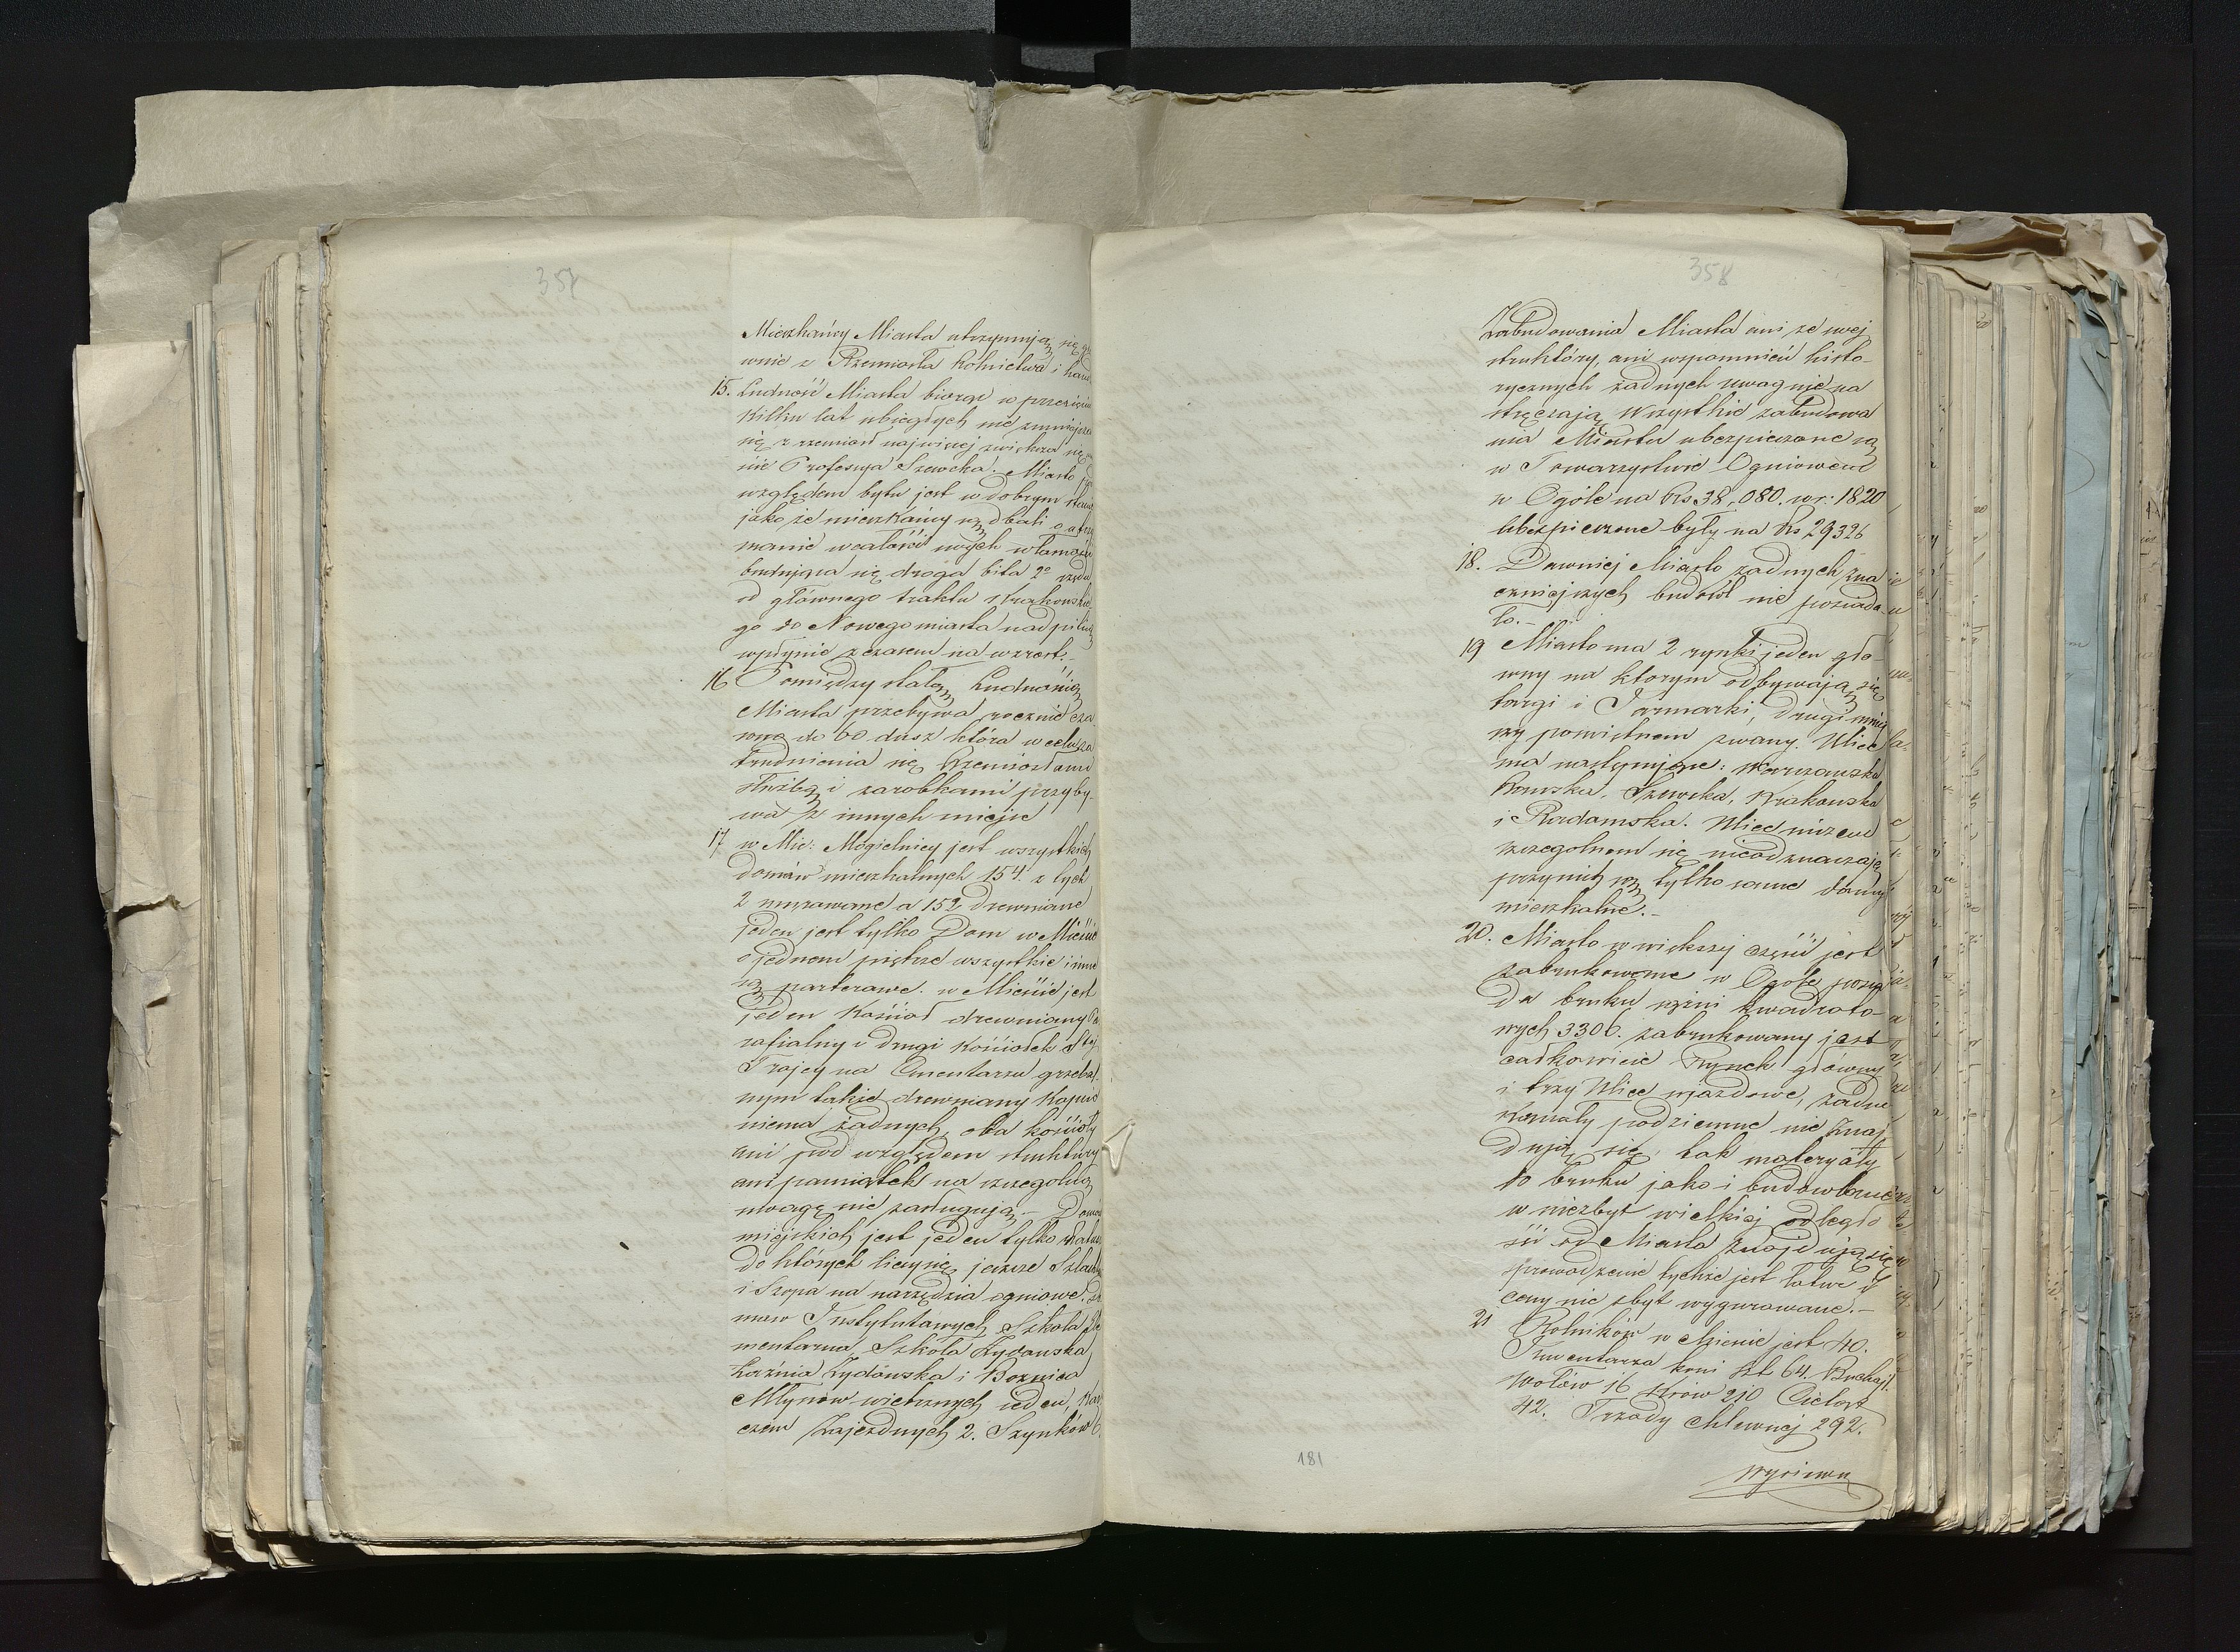 357
Mieszkańcy Miasta utrzymują się gł
wnie z Rzemiosła Rolnictwa i hand
15. Ludność Miasta biorąc w przecięciu
Kilku lat ubiegłych nie zmniejsza
się z rzemiosł najwięcej zwiększa się
nie Profesya Szewcka. Miasto pod
względem bytu jest w dobrym stanie
jako że mieszkańcy są dbali o utrzy
manie wcałości swych własności
budująca się droga bita 2º rzędu
od głównego traktu Krakowskie
go do Nowegomiasta nad pilicą
wpłynie z czasem na wzrost.-
16 Pomiędzy stałą Ludnością
Miasta przebywa rocznie cza
sowo do 60 dusz która w celu za
trudnienia się Rzemiosłami
służbą i zarobkami przyby-
wa z innych miejsc
17 w Mie: Mogielnicy jest wszystkich
domów mieszkalnych 154. z tych
2 murowane a 152 drewniane
jeden jest tylko Dom w Mieście
o jednem piętrze wszystkie inne
są parterowe. w Mieście jest
jeden Kościoł drewniany Pa
rafialny i drugi Kościołek Stej
Trojcy na Cmentarzu grzebal
nym także drewniany Kaplic
niema żadnych, oba kościoły
ani pod względem struktury
ani pamiątek na szczególną
uwagę nie zasługują.- Domów
miejskich jest jeden tylko Ratusz
do których liczy się jeszcze Szlacht
i Szopa na narzędzia ogniowe. Do
mow Instytutowych Szkoła Ele
mentarna, Szkoła Żydowska
Łaźnia Żydowska i Boznica
Młynów wietrznych ieden, Kar
czem Zajezdnych 2. Szynków 6.
358
Zabudowania Miasta ani ze swej
struktóry, ani wspomnień histo-
rycznych żadnych uwag nie na
stręczają Wszystkie zabudowa
nia Miasta ubezpieczone są
w Towarzystwie Ogniowem
w Ogóle na Rs 38,080. w r: 1820
Ubezpieczone były na Rs 29326
18. Dawniej Miasto żadnych zna
czniejszych budowl nie posiada
ło.-
19 Miasto ma 2 rynki jeden głó-
wny na ktorym odbywają się
targi i Jarmarki, drugi mniej
szy powiślnem zwany. Ulice
ma następujące: Warszawska
Rawska, Szewcka, Krakowska
i Radomska. Ulice niczem
szczegolnem się nieodznaczają
przy nich są tylko same domy
mieszkalne.-
20. Miasto w większy części jest
zabrukowane w Ogóle posia
da bruku sążni kwadrato-
wych 3306. zabrukowany jest
całkowicie Rynek główny
i trzy Ulice wjazdowe, żadne
kanały podziemne nie znaj
dują się, tak materyały
do bruku jako i budowlane
w niezbyt wielkiej odległo
ści od Miasta znajdują się
prowadzenie tychże jest łatwe i
ceny nie zbyt wygurowane.-
21 Rolników w Mieście jest 40.
Inwentarza koni szt 64. Buchaj 1.
Wołów 16 Krów 210 Cieląt
42. Trzody Chlewnej 292.
181